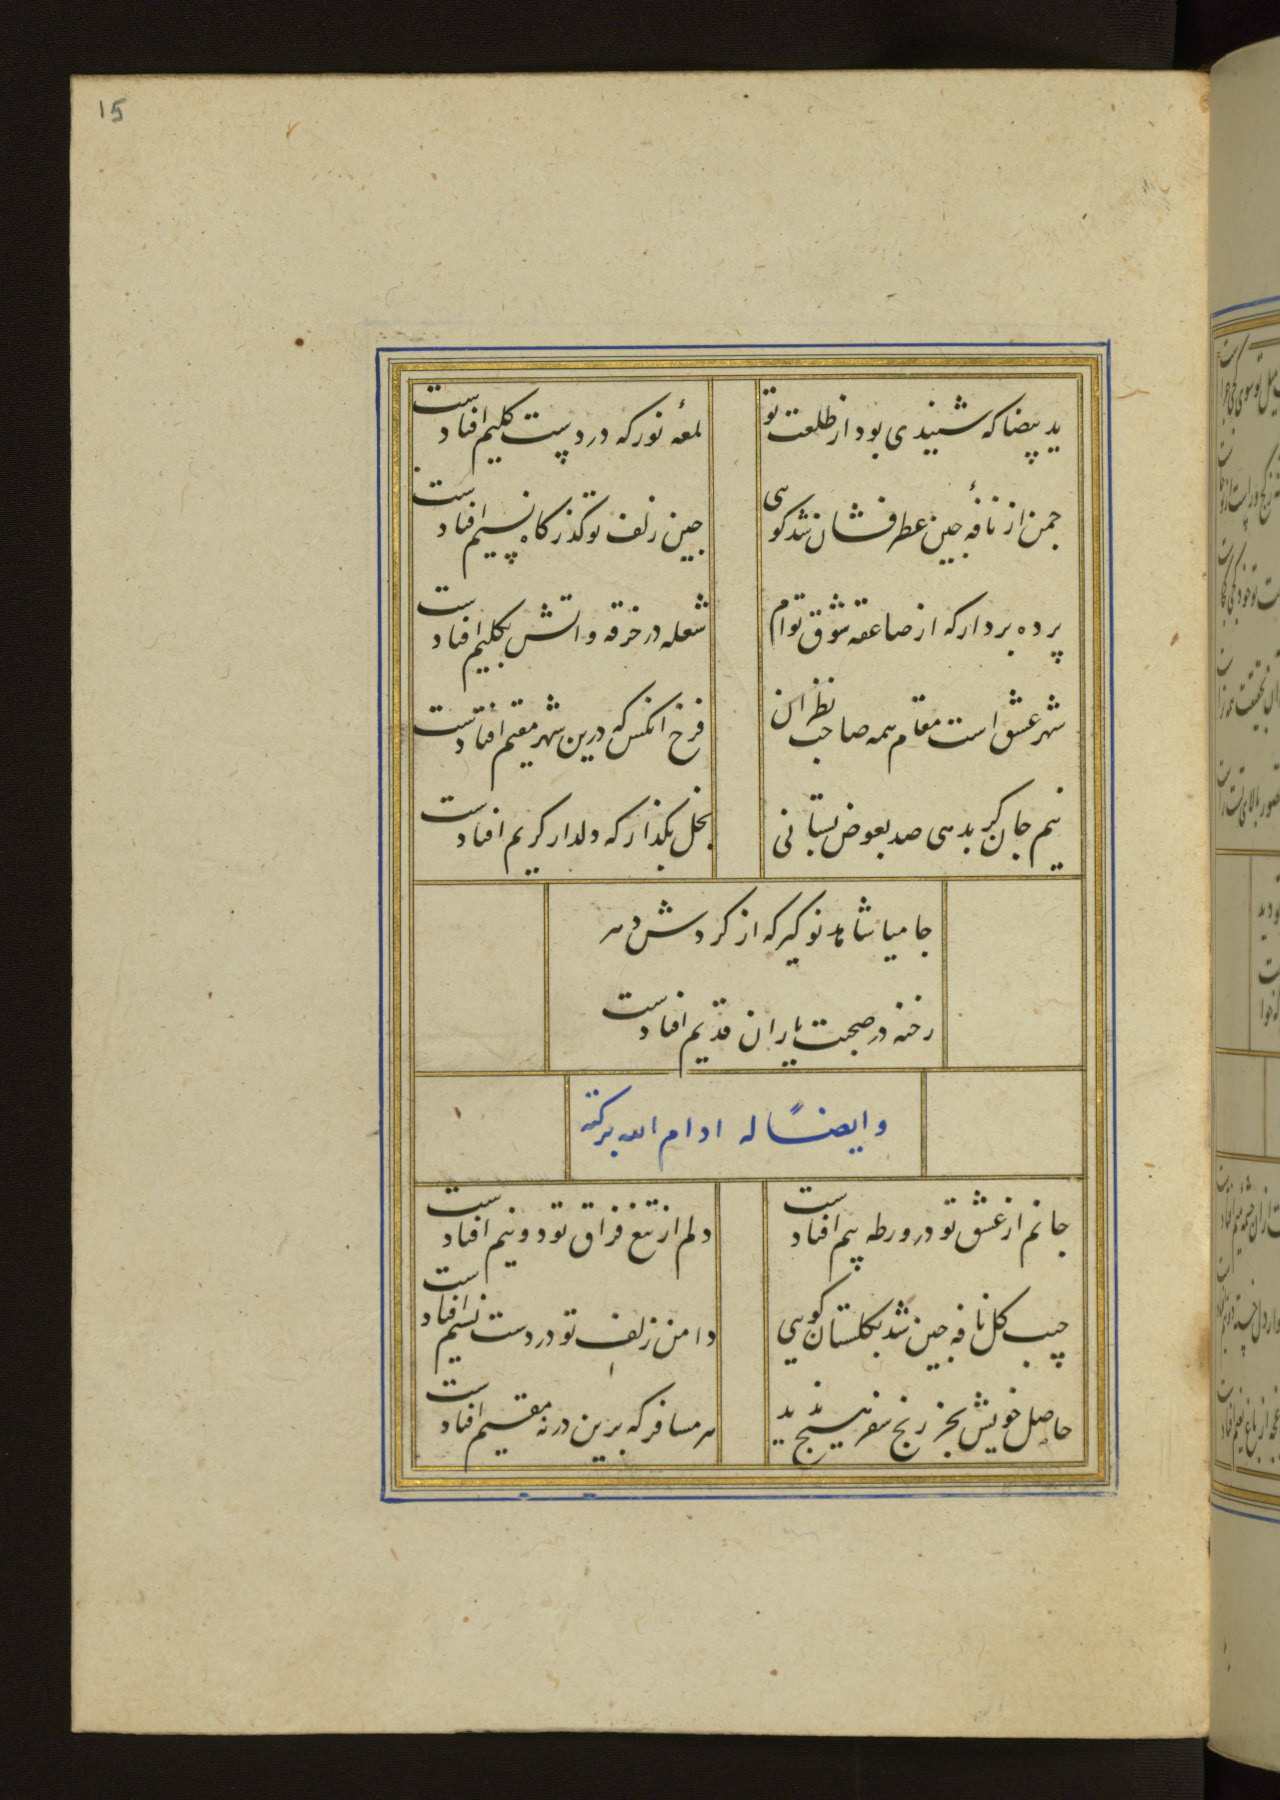 15
ید بیضا که شنیدی بود از طلعت تو
لمعهٔ نور که در دست کلیم افتادست
چمن از نافهٔ چین عطر فشان شد کوهی
چین زلف تو گذرگاه نسیم افتادست
پرده بردار که از صاعقه شوق توام
شعله در خرقه و آتش بگلیم افتادست
شهر عشق است مقام همه صاحب نظران
فرخ آنکس که درین شهر مقیم افتادست
نیم جان گر بدهی صد بعوض بستانی
بخل بگذار که دلدار کریم افتادست
جامیا شاهد نو گیر که از گردش دهر
رخنه در صحبت یاران قدیم افتادست
وایضاً له ادام الله برکته
جانم از عشق تو در ورطه بیم افتادست
دلم از تیغ فراق تو دو نیم افتادست
جیب گل نافه چین شد بگلستان گویی
دامن زلف تو در دست نسیم افتادست
حاصل خویش بجز رنج سفر
هر مسافر که برین در نه مقیم افتادست